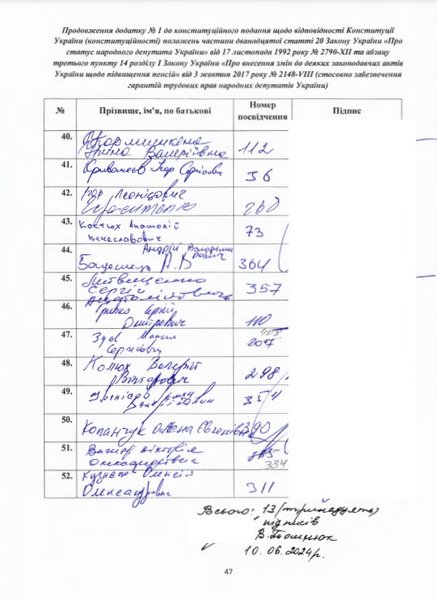 Продовження додатку № 1 до конституційного подання щодо відповідності Конституції
України (конституційності) положень частини дванадцятої статті 20 Закону України «Про
статус народного депутата України» від 17 листопада 1992 року № 2790-XII та абзацу
третього пункту 14 розділу I Закону України «Про внесення змін до деяких законодавчих актів
України щодо підвищення пенсій» від 3 жовтня 2017 року № 2148-VIII (стосовно забезпечення
гарантій трудових прав народних депутатів України)
№ Прізвище, ім’я, по батькові Номер посвідчення Підпис
40.
Ірина Валеріївна 112
41. Сергійович 36
42. Леонідович
43. Костюх Анатолій
Вячеславович 73
44. Андрій Володими
рович
А.В 364
45. Литвиненко
Сергій
Анатолійович 357
46. Гривко Сергій
Дмитрович 110
47. Зуєв Максим
Сергійович 207
48. Колюх Валерій
Вікторович 298
49. 354
50. Копанчук Олена Євгенівна 390
51. Вагнєр Вікторія
Олександрівна 384
52. Кузнєцов Олексій
Олександрович 311
Всього: 13 (тринадцять)
підписів
10.06.2024р.
47